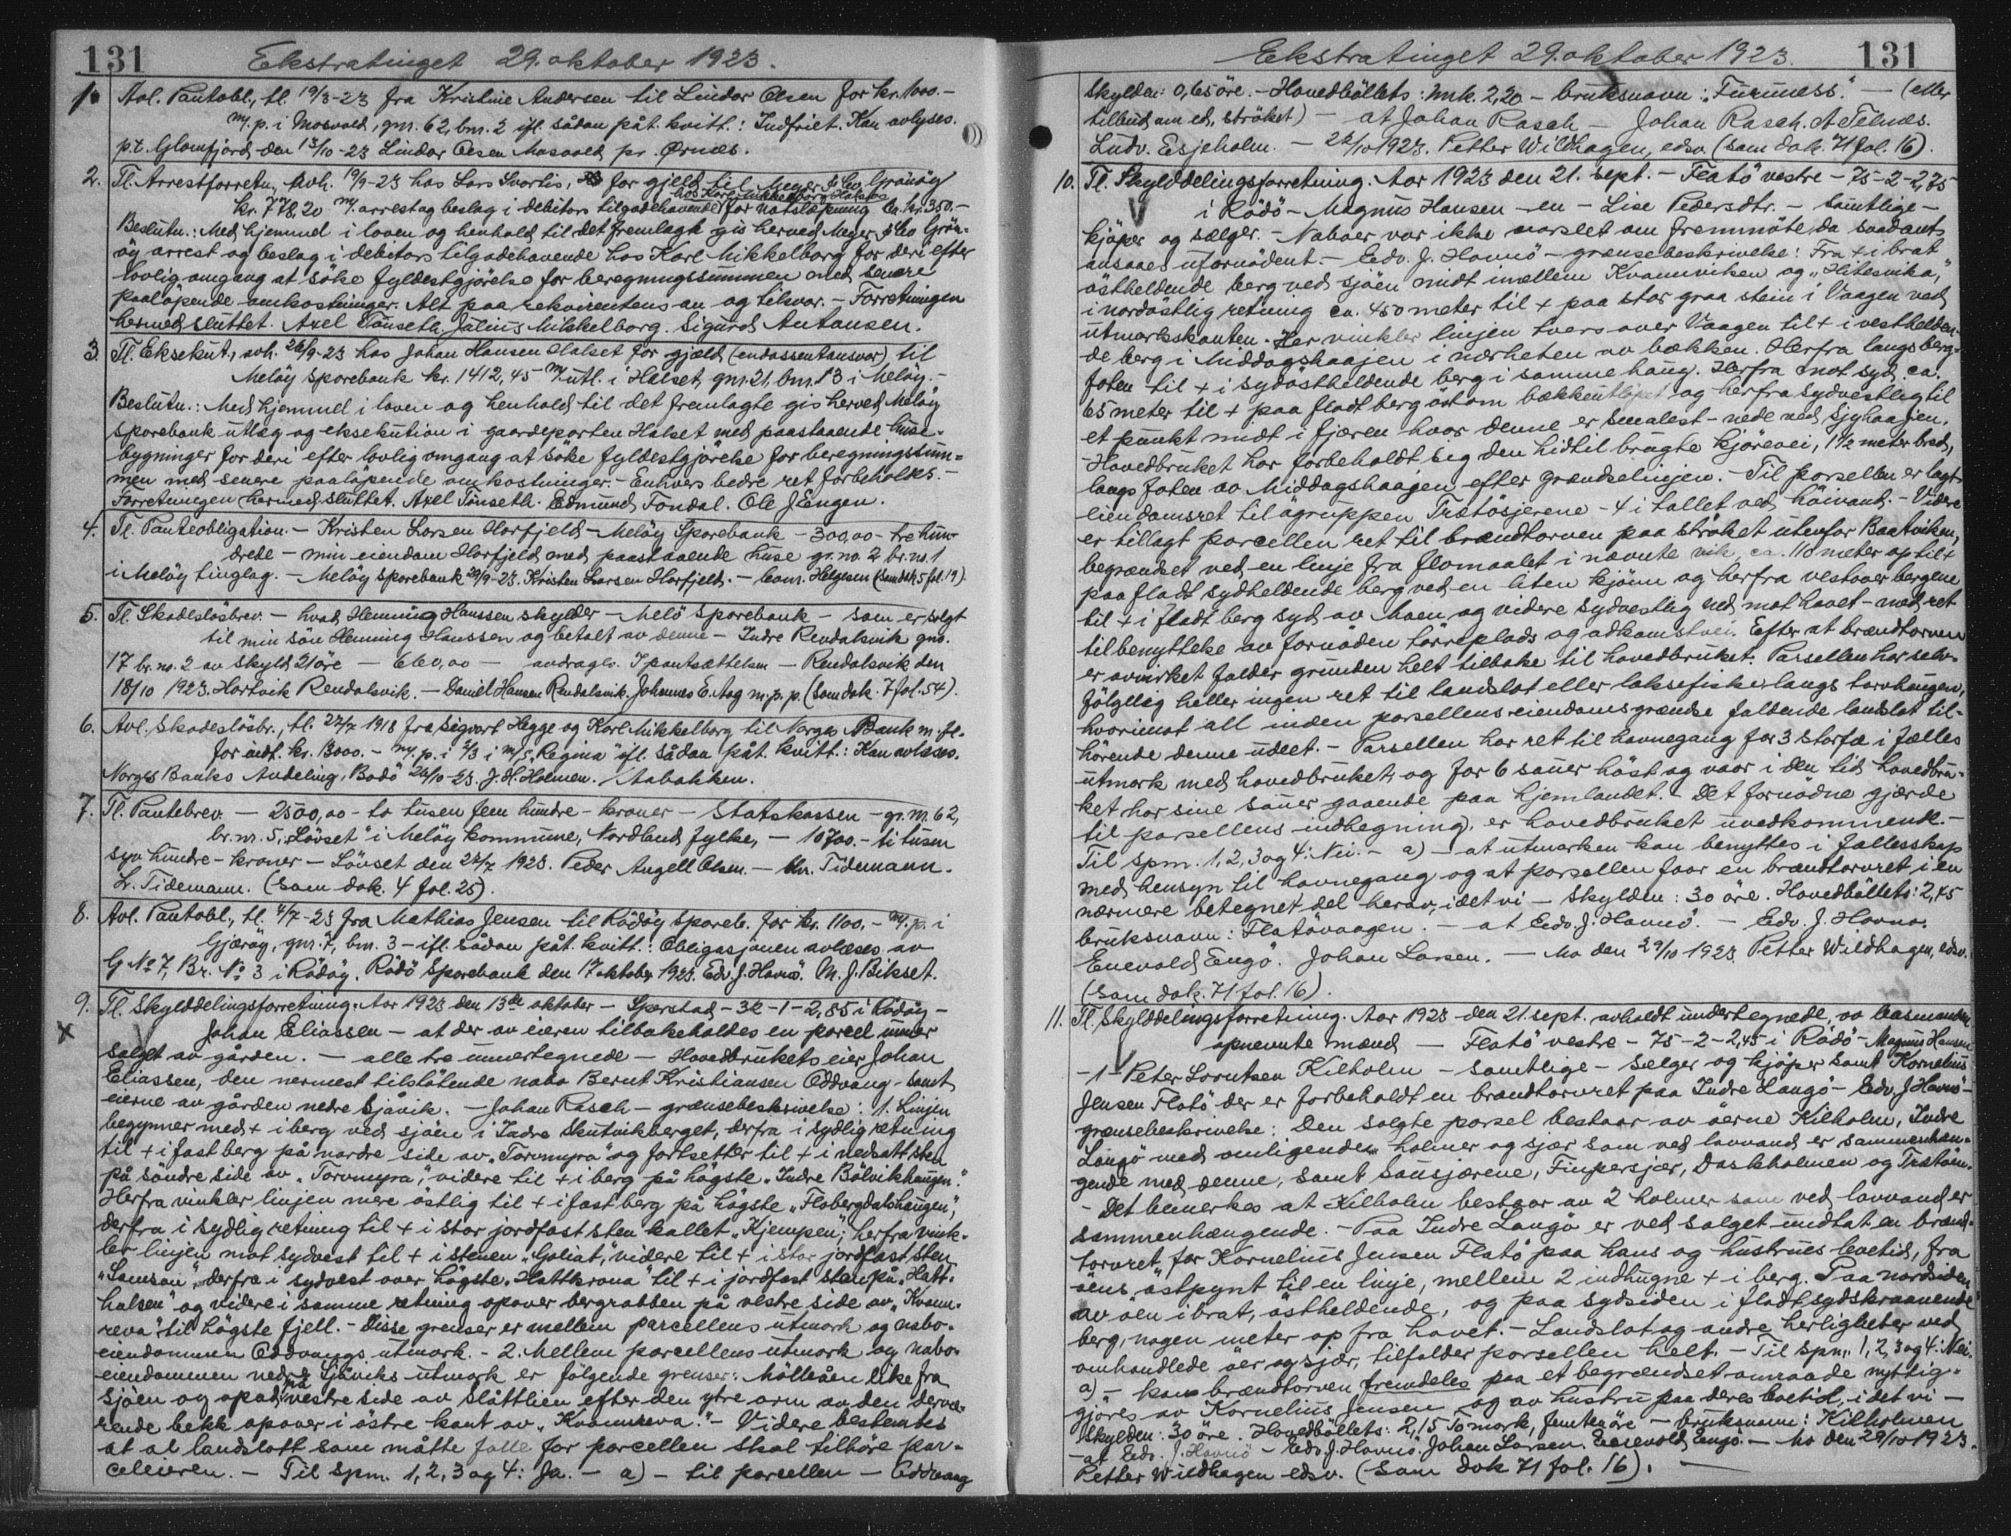 131 Ekstratinget 29. oktober 1923.
1. Avl. Pantobl., tl. 19/3-23 fra Kristine Andersen til Lindor Olsen for kr. 1000.-
m/p. i Mosvold, gnr. 62, bnr. 2 ifl. sådan påt. kvitt.: Indfriet. Kan avlyses.
p.t. Glomfjord den 13/10-23 Lindor Olsen Mosvold pr. Ørnes.
2. Tl. Arrestforretn., avh. 19/9-23 hos Lars Svartis, for gjeld til Meyer & Co, Grönöy
hos Karl Mikkelborg, Halsa
kr. 778,20 m/ arrest og beslag i debitors tilgodehavende for notslöpning ca. kr. 350.-
Beslutn.: Med hjemmel i loven og henhold til det fremlagte gis herved Meyer & Co Grön-
öy arrest og beslag i debitors tilgodehavende hos Karl Mikkelborg for deri efter
lovlig omgang at söke fyldestgjörelse for beregningssummen med senere
paalöpende omkostninger. Alt paa rekvirentens an og tilsvar. - Forretningen
hermed sluttet. Axel Tönseth, Julius Mikkelborg. Sigurd Antonsen.
3. Tl. Eksekut., avh. 26/9-23 hos Johan Hansen Halset for gjæld (endossentansvar) til
Melöy Sparebank kr. 1412,45 m/ utl. i Halset, gnr. 21, bnr. 13 i Melöy.-
Beslutn.: Med hjemmel i loven og henhold til det fremlagte gis herved Melöy
Sparebank utlæg og eksekution i gaardparten Halset med paastaaende huse-
bygninger for deri efter lovlig omgang at söke fyldestgjörelse for beregningssum-
men med senere paalöpende omkostninger. - Enhvers bedre ret forbeholdes.-
Forretningen hermed sluttet. Axel Tönseth. Edmund Fondal. Ole J Engen.
4. Tl. Panteobligation. - Kristen Larsen Horfjeld - Melöy Sparebank - 300,00 - tre hun-
drede - min eiendom Horfjeld med paastaaende huse gr. no. 2 br. no. 1
i Melöy tinglag. - Melöy Sparebank 29/9-23. Kristen Larsen Horfjeld. - Conr. Helgesen (Som dok 5 fol. 19)
5. Tl. Skadeslösbrev. - hvad Henning Hanssen skylder - Melö Sparebank - som er solgt
til min sön Henning Hanssen og betalt av denne - Indre Rendalsvik gno.
17 br. no. 2 av skyld 21 öre - 660,00 - avdragsv. I pantsættelsen - Rendalsvik den
18/10 1923. Hartvik Rendalsvik. - Daniel Hansen Rendalsvik. Johannes E. Aag m. p. p. (Som dok. 7 fol. 54).
6. Avl. Skadeslösbr., tl. 22/7 1918 fra Sigvart Hegge og Karl Mikkelborg til Norges Bank m. fl.
for indt. kr. 13000. - m/p. i 2/3 i m/s. "Regina" ifl. sådan påt. kvitt.: Kan avlæses.
Norges Banks Avdeling, Bodö 26/10-23. J. H. Holmen. / Aabakken.
7. Tl. Pantebrev. - 2500,00 - to tusen fem hundre - kroner - Statskassen - gr. nr. 62,
br. nr. 5, "Lövset" i Melöy kommune, Nordland fylke, - 10700.- ti tusen
syv hundre - kroner - Lövset den 22/7 1923. Peder Angell Olsen. - Chr. Tidemann.
L. Tidemann. (Som dok. 4 fol. 25).
8. Avl. Pantobl., tl. 4/7-23 fra Mathias Jensen til Rödöy Spareb. for kr. 1100.- m/. p. i
Gjæröy, gnr. 7, bnr. 3 - ifl. sådan påt. kvitt.: Obligasjonen avlæses av
G No 7, Br. No 3 i Rödöy. Rödö Sparebank den 17 oktober 1923. Edv. J. Havnö. M. J. Bikset.
9. Tl. Skylddelingsforretning. Aar 1923 den 13de oktober - Sperstad - 32-1-2,85 i Rödöy -
x Johan Eliassen - at der av eieren tilbakeholdes en parcel unner
salget av gården. - alle tre unnertegnede - Hovedbrukets eier Johan
Eliassen, den nermest tilstötende nabo Bernt Kristiansen Oddvang - samt
eierne av gården nedre Sjåvik. - Johan Rasch - grænsebeskrivelse: 1. Linjen
begynner med + i berg ved sjöen i Indre Skutvikberget, derfra i sydlig retning
til + i fast berg på nordre side av "Torvmyra" og fortsetter til + i nedsatt sten
på söndre side av "Torvmyra", videre til + i berg på högste "Indre Bölvikhaugen".
Herfra vinkler linjen mere östlig til + i fast berg på högste "Flobergdalshaugen",
derfra i sydlig retning til + i stor jordfast sten kallet "Kjempen", herfra vink-
ler linjen mot sydvest til + i stenen "Goliat", videre til + i stor jordfast sten
"Samson", derfra i sydvest over högste "Hattkrona" til + i jordfast sten på "Hatt-
halsen" og videre i samme retning opover bergrabben på vestre side av "Kvann-
reva" til högste fjell. - Disse grenser er mellem parcellens utmark og nabo-
eiendommen Oddvangs utmark. - 2. Mellem parcellens utmark og nabo-
eiendommen nedre Sjåviks utmark er fölgende grenser: Mölleåen like fra
sjöen og opad på vestre side av slåttlien efter den ytre arm av den dervæ-
rende bekk opover i östre kant av "Kvannreva". - Videre bestemtes
at al landslott som måtte falle for parcellen skal tilhöre par-
celeieren. - Til spm. 1, 2, 3 og 4: Ja. - a) - til parcellen - Oddvang
Ekstratinget 29. oktober 1923. 131
Skylden: 0,65 öre. - Hovedböllets: mrk. 2,20 - bruksnavn: "Furuness". - (eller
tilbud om ed, ströket) - at Johan Rasch - Johan Rasch. A Telnes.
Ludv. Esjeholm. - 22/10 1923. Petter Wildhagen, edsv. (Som dok. 71 fol. 16).
10. Tl. Skylddelingsforretning. Aar 1923 den 21. sept. - Flatö vestre - 75-2-2,75
i Rödö - Magnus Hansen - en - Lise Pedersdtr. - samtlige -
kjöper og sælger. - Naboer var ikke varslet om fremmöte da saadant
ansaaes ufornödent. - Edv. J. Havnö - grænsebeskrivelse: Fra + i brat
östheldende berg ved sjöen midt imellem Kvannviken og "Hitesvika",
i nordöstlig retning ca. 450 meter til + paa stor graa stein i Vaagen ved
utmarkskanten. Her vinkler linjen tvers over Vaagen til + i vesthelden-
de berg i Middagshaajen i nærheten av bækken. Herfra langs berg-
foten til + i sydöstheldende berg i samme haug. Herfra mot syd ca.
65 meter til + paa fladt berg östom bækkeutlöpet og herfra sydvestlig til
et punkt midt i fjæren hvor denne er smalest - nede ved Sjyhaajen.
Hovedbruket har forbeholdt sig den hidtil brugte kjörevei, 1 1/2 meter bred,
langs foten av Middagshaajen efter grændselinjen. - Til parsellen er lagt
eiendomsret til ögruppen Tratöskjerene - 4 i tallet ved höivand. - Videre
er tillagt parcellen ret til brændtorven paa ströket utenfor Baatviken,
begrændset ved en linje fra flomaalet i nævnte vik, ca. 110 meter op til +
paa fladt sydheldende berg ved en liten kjönn og herfra vestover bergene
til + i fladt berg syd av Moen og videre sydvestlig ned mot havet - med ret
til benyttelse av fornöden törreplads og adkomstvei. Efter at brændtorven
er avvirket falder grunden helt tilbake til hovedbruket. Parsellen har selv-
fölgelig heller ingen ret til landslot eller laksefiske langs torvhaugen,
hvorimot all inden parsellens eiendomsgrændse faldende landslot til-
hörende denne udelt. - Parsellen har ret til havnegang for 3 storfæ i fælles
utmark med hovedbruket, og for 6 sauer höst og vaar i den tid hovedbru-
ket har sine sauer gaaende paa hjemlandet. - Det fornödne gjærde
til parsellens indhegning, er hovedbruket uvedkommende. -
Til spm. 1, 2, 3 og 4: Nei. - a) - at utmarken kan benyttes i fællesskap
med hensyn til havnegang og at parsellen faar en brændtorvret i en
nærmere betegnet del herav, idet vi - Skylden: 30 öre. Hovedböllets: 2,45
bruksnavn: Flatövaagen. - at Edv. J. Havnö. - Edv. J. Havnö.
Enevold Engö. Johan Larsen. - Mo den 29/10 1923. Petter Wildhagen, edsv.
(Som dok. 71 fol. 16).
11. Tl. Skylddelingsforretning. Aar 1923 den 21. sept. avholdt undertegnede, av lensmanden
opnevnte mænd - Flatö vestre - 75-2-2,45 i Rödö - Magnus Hansen
- 1 - Peter Lorntsen Kilholm - samtlige - Selger og kjöper samt Kornelius
Jensen Flatö der er forbeholdt en brændtorvret paa Indre Langö - Edv. J. Havnö -
grænsebeskrivelse: Den solgte parsel bestaar av öerne Kilholm, Indre
Langö med omliggende holmer og sjær som ved lavvand er sammenhæn-
gende med denne, samt Sausjærene, Finpersjær, Daskholmen og Tratöen.
- Det bemerkes at Kilholm bestaar av 2 holmer som ved lavvand er
sammenhængende. - Paa Indre Langö er ved salget undtat en brænd-
torvret for Kornelius Jensen Flatö paa hans og hustrues levetid, fra
öens östpynt til en linje, mellem 2 indhugne + i berg. Paa nordsiden
av öen i brat, östheldende, og paa sydsiden i fladt sydskraanende
berg, nogen meter op fra havet. - Landslot og andre herligheter ved
omhandlede öer og sjær, tilfalder parsellen helt. - Til spm. 1, 2, 3 og 4: Nei.
a) - kan brændtorven fremdeles paa et begrændset omraade nyttig-
gjöres av Kornelius Jensen og av hustru paa deres levetid, idet vi -
Skylden: 30 öre. Hovedböllets: 2,15 to mark, femten öre - bruksnavn: Kilholmen
- at Edv. J. Havnö - Edv. J. Havnö. Johan Larsen. Enevold Engö. - Mo den 29/10 1923.
Petter Wildhagen edsv. (Som dok 71 fol. 16).